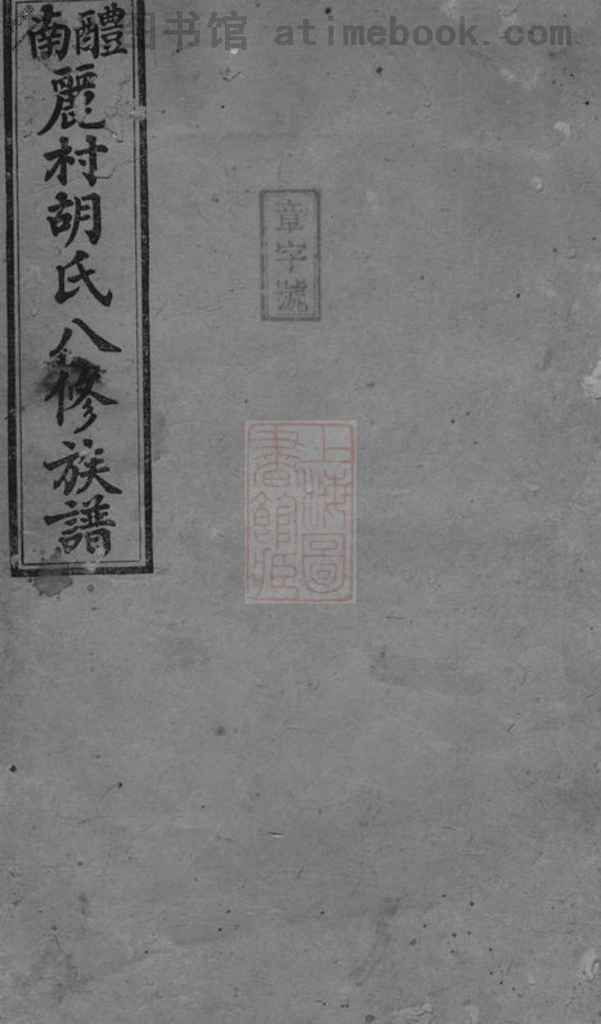 图书馆 atimebook.com
醴南
麗村胡氏八修族譜
章字號
上海圖
書館藏